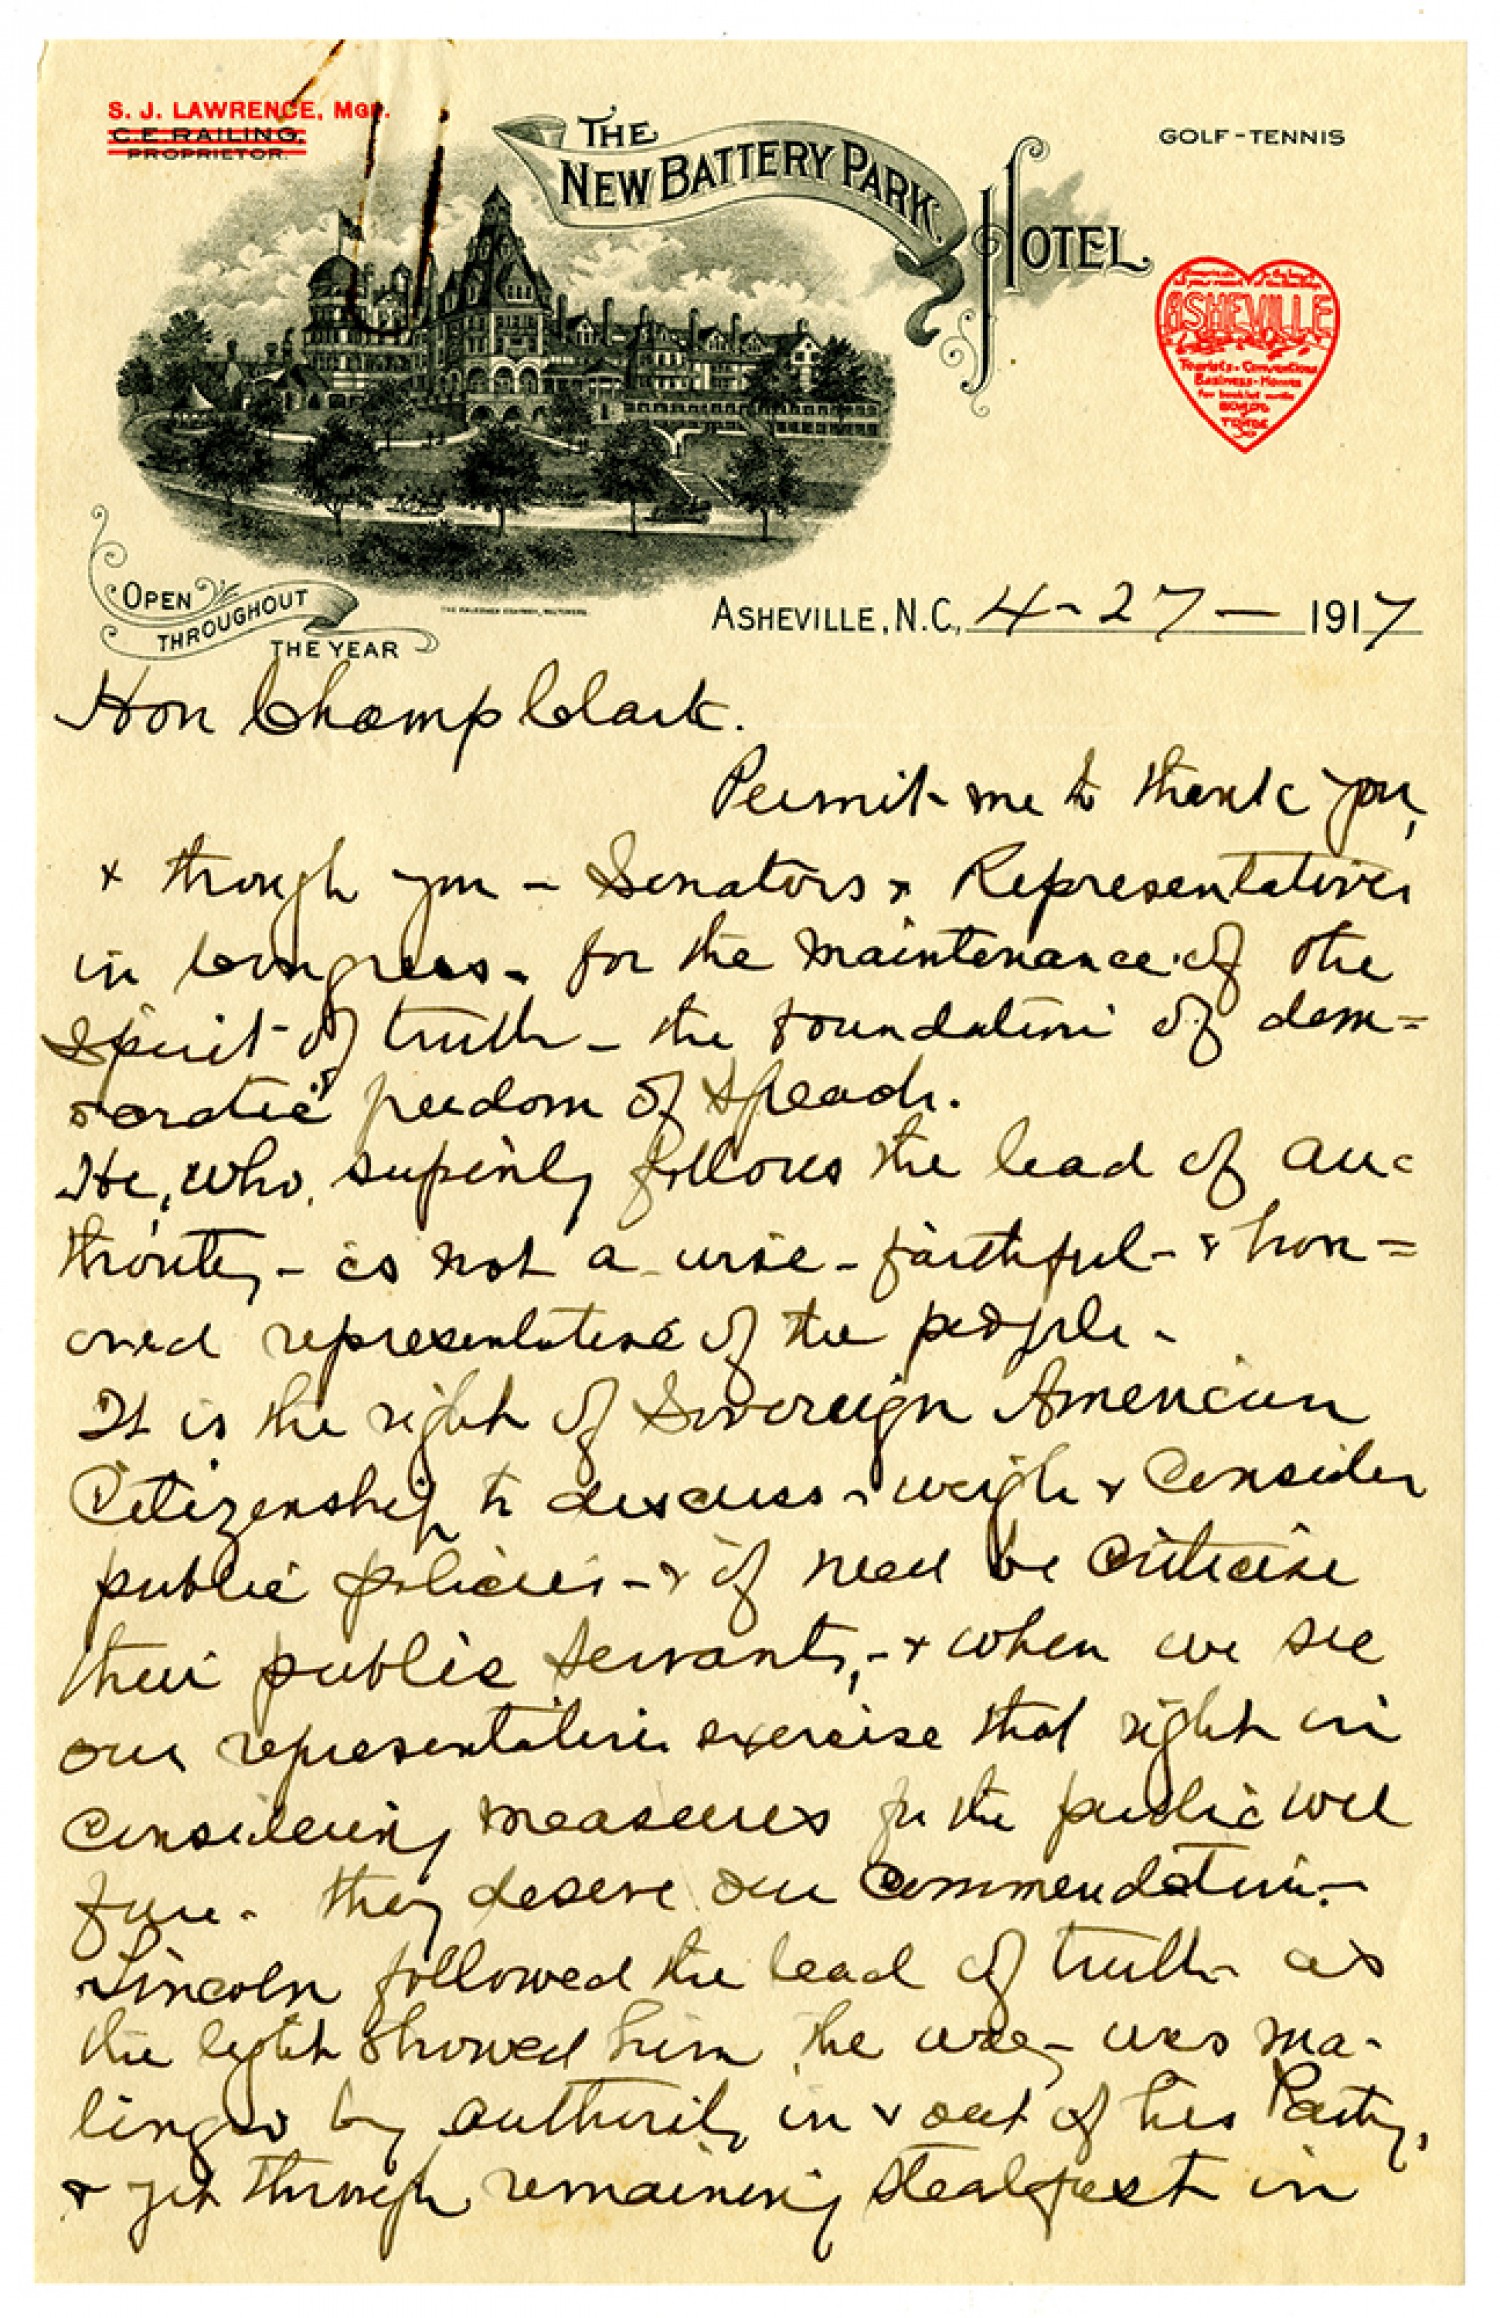 S. J. LAWRENCE, MGR.
C. E. RAILING,
PROPRIETOR.
THE
NEW BATTERY PARK
HOTEL
GOLF - TENNIS
ASHEVILLE
Tourists - Conventions
Business - Homes
for booklet write
BOARD
OF
TRADE
OPEN
THROUGHOUT
THE YEAR
ASHEVILLE, N.C., 4-27- 1917
Hon Champ Clark.
Permit me to thank you,
& through you - Senators & Representatives
in Congress - for the maintenance of the
spirit of truth - the foundation of dem=
ocratic freedom of speach.
He, who, supinly follows the lead of au=
thority - is not a wise - faithful - & hon=
ored representative of the people -
It is the right of Sovereign American
Citizenship to discuss - weigh & Consider
public policies - & if need be Criticise
their public servants, - & when we see
our representatives exercise that right in
Considering measures for the public wel
fare - they deserve our Commendation -
Lincoln followed the lead of truth as
the light showed him the way - was ma-
linged by authority in & out of his Party,
& yet through remaining steadfast in